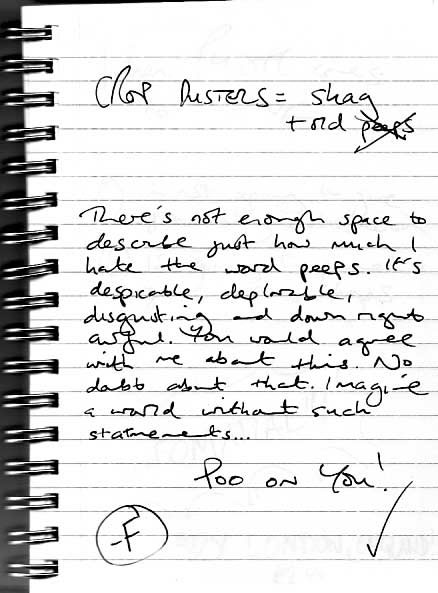 CROP DUSTERS = shag
+ old peeps
There's not enough space to
describe just how much I
hate the word peeps. It's
despicable, deplorable,
disgusting and down right
awful. You would agree
with me about this. No
dabb about that. Imagine
a world without such
statmements...
Poo on You!
-F